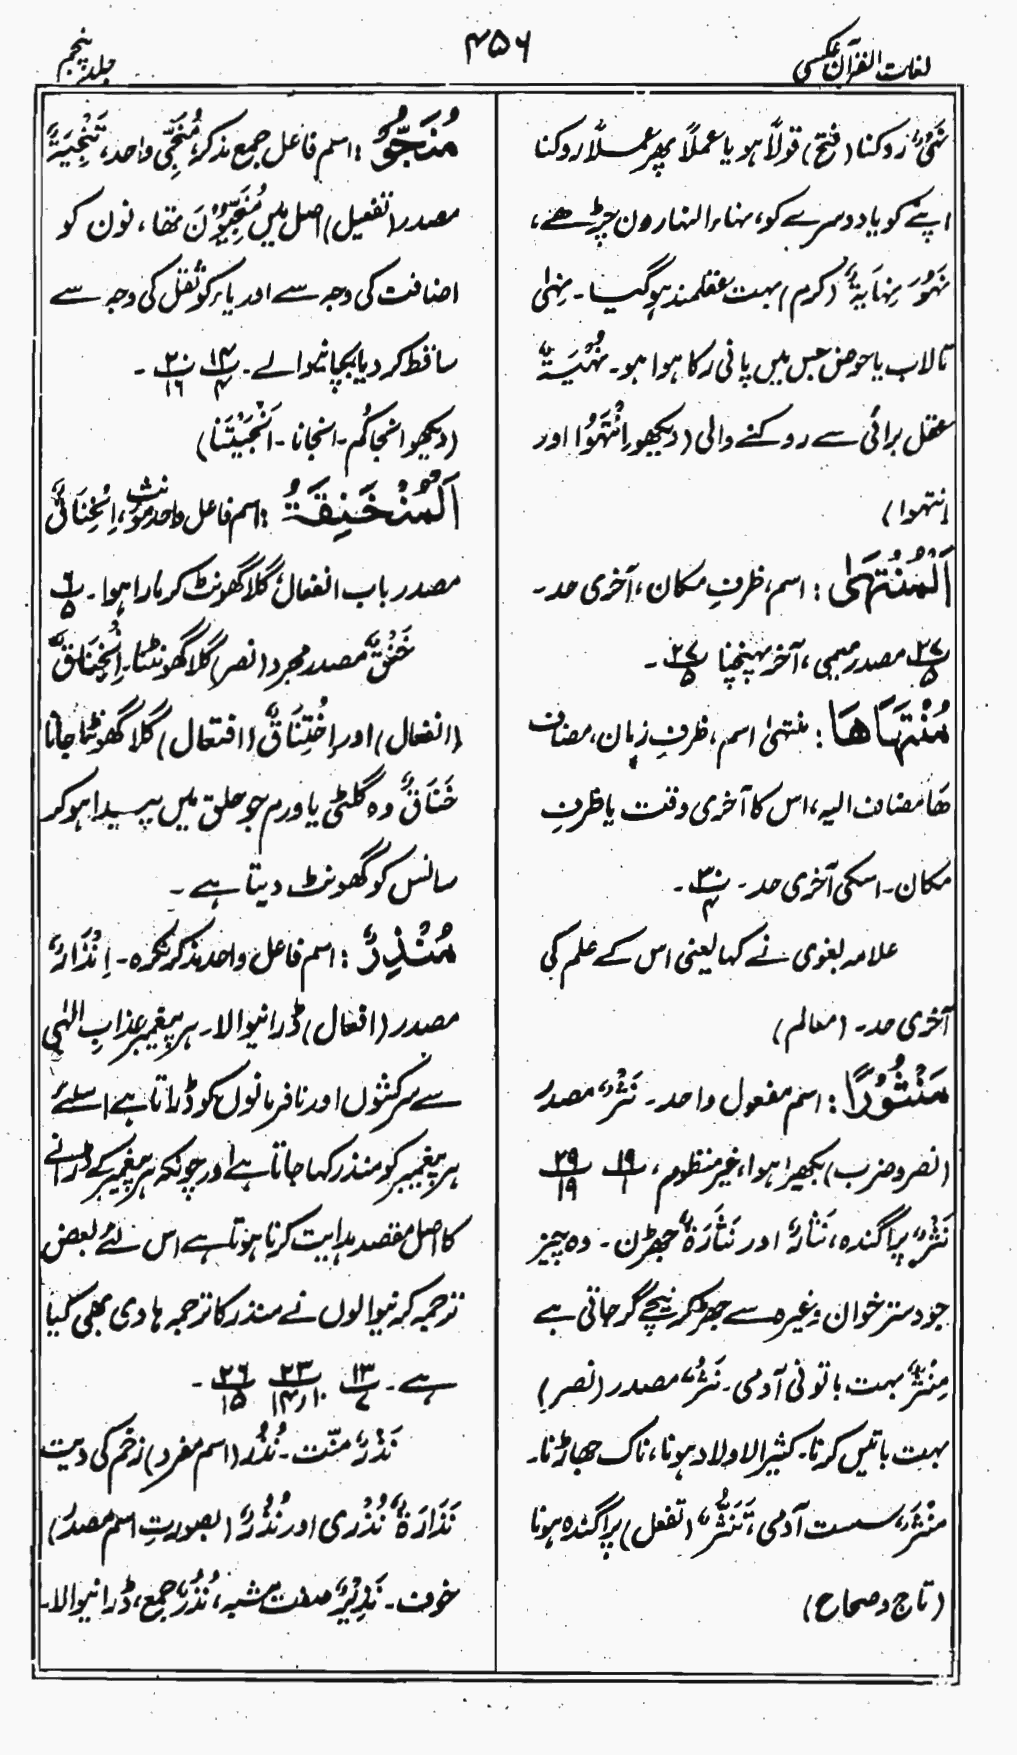 لغات القرآن عکسی
۴۵۶
جلد پنجم
نَہْیٌ روکنا (فتح) قولًا ہو یا عملًا پھر عملًا روکنا
اپنے کو یا دوسرے کو، نہاء النہار دن چڑھے،
نَہُوَ نِہَایَۃٌ (کرم) بہت عقلمند ہو گیا۔ نِہٰی
تالاب یا حوض جس میں پانی رکا ہوا ہو۔ نُہْیَۃٌ
عقل برائی سے روکنے والی (دیکھو اِنْتَہَوْا اور
انتہوا)
اَلْمُنْتَہٰی: اسم، ظرفِ مکان، آخری حد۔
۲۷/۵ مصدر میمی، آخر پہنچنا ۲۷/۵۔
مُنْتَہَاھَا: منتہیٰ اسم، ظرفِ زمان، مضاف
ھَا مضاف الیہ، اس کا آخری وقت یا ظرفِ
مکان۔ اسکی آخری حد۔ ۳۰/۴۔
علامہ بغوی نے کہا یعنی اس کے علم کی
آخری حد۔ (معالم)
مَنْثُوْرًا: اسم مفعول واحد۔ نَثْرٌ مصدر
(نصر و ضرب) بکھیرا ہوا، غیر منظوم، ۱۹/۱ ۲۹/۱۹
نَثْرٌ پراگندہ، نَثَارٌ اور نَثَارَۃٌ جھڑن۔ وہ چیز
جو دسترخوان وغیرہ سے جھڑ کر نیچے گر جاتی ہے
مِنْثَرٌ بہت باتونی آدمی۔ نَثْرٌ مصدر (نصر)
بہت باتیں کرنا۔ کثیر الاولاد ہونا، ناک جھاڑنا۔
مَنْثَرٌ سست آدمی، تَنَثُّرٌ (تفعل) پراگندہ ہونا
(تاج و صحاح)
مُنَجُّوْ: اسم فاعل جمع مذکر، مُنَجِّی واحد، تَنْجِیَۃٌ
مصدر (تفعیل) اصل میں مُنَجِّیُوْنَ تھا، نون کو
اضافت کی وجہ سے اور یاء کو ثقل کی وجہ سے
ساقط کر دیا بچانیوالے۔ ۱۴/۴ ۲۰/۱۶۔
(دیکھو انجاکُم۔ انجانا۔ اَنْجَیْتَنَا)
اَلْمُنْخَنِقَۃُ: اسم فاعل واحد مؤنث، اِنْخِنَاقٌ
مصدر باب انفعال گلا گھونٹ کر مارا ہوا۔ ۶/۵
خَنْقٌ مصدر مجرد (نصر) گلا گھونٹنا۔ اِنْخِنَاقٌ
(انفعال) اور اِخْتِنَاقٌ (افتعال) گلا گھونٹا جانا
خَنَاقٌ وہ گلٹی یا ورم جو حلق میں پیدا ہو کر
سانس کو گھونٹ دیتا ہے۔
مُنْذِرٌ: اسم فاعل واحد مذکر نکرہ۔ اِنْذَارٌ
مصدر (افعال) ڈرانیوالا۔ ہر پیغمبر عذابِ الٰہی
سے سرکشوں اور نافرمانوں کو ڈراتا ہے اسلئے
ہر پیغمبر کو منذر کہا جاتا ہے اور چونکہ ہر پیغمبر کے ڈرانے
کا اصل مقصد ہدایت کرنا ہوتا ہے اس لئے بعض
ترجمہ کرنیوالوں نے منذر کا ترجمہ ہادی بھی کیا
ہے۔ ۱۳/۷ ۲۳/۱۰ر۱۴ ۲۶/۱۵۔
نَذْرٌ منّت۔ نُذُر (اسم مفرد) زخم کی دیت
نَذَارَۃٌ نُذْرٰی اور نُذْرٌ (بصورتِ اسم مصدر)
خوف۔ نَذِیْرٌ صفت مشبہ، نُذُرٌ جمع، ڈرانیوالا۔